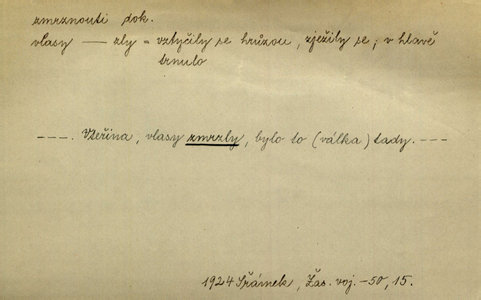 zmrznouti dok.
vlasy — zly = vztyčily se hrůzou, zježily se; v hlavě
trnulo
---. Vteřina, vlasy zmrzly, bylo to (válka) tady. ---
1924 Šrámek, Žas. voj. -50, 15.